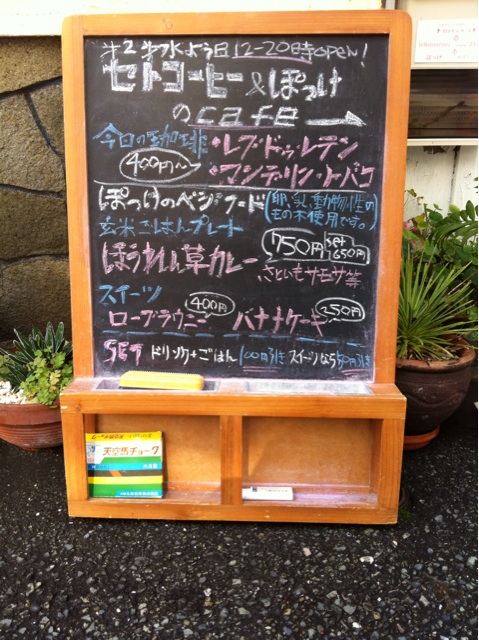 第2 第4 水よう日 12-20時open!
セトコーヒー&ぽっけ
のcafe →
今日の珈琲
400円〜
・レブ・ドゥ・レテン
・マンデリン・トバコ
ぽっけのベジ・フード
(卵、乳、動物性のもの不使用です。)
玄米ごはんプレート
750円 set 650円
ほうれん草カレー
さといもサモサ等
スイーツ
400円 250円
ローブラウニー バナナケーキ
SET ドリンク+ごはん 100円引き スイーツなら50円引き
天空馬チョーク